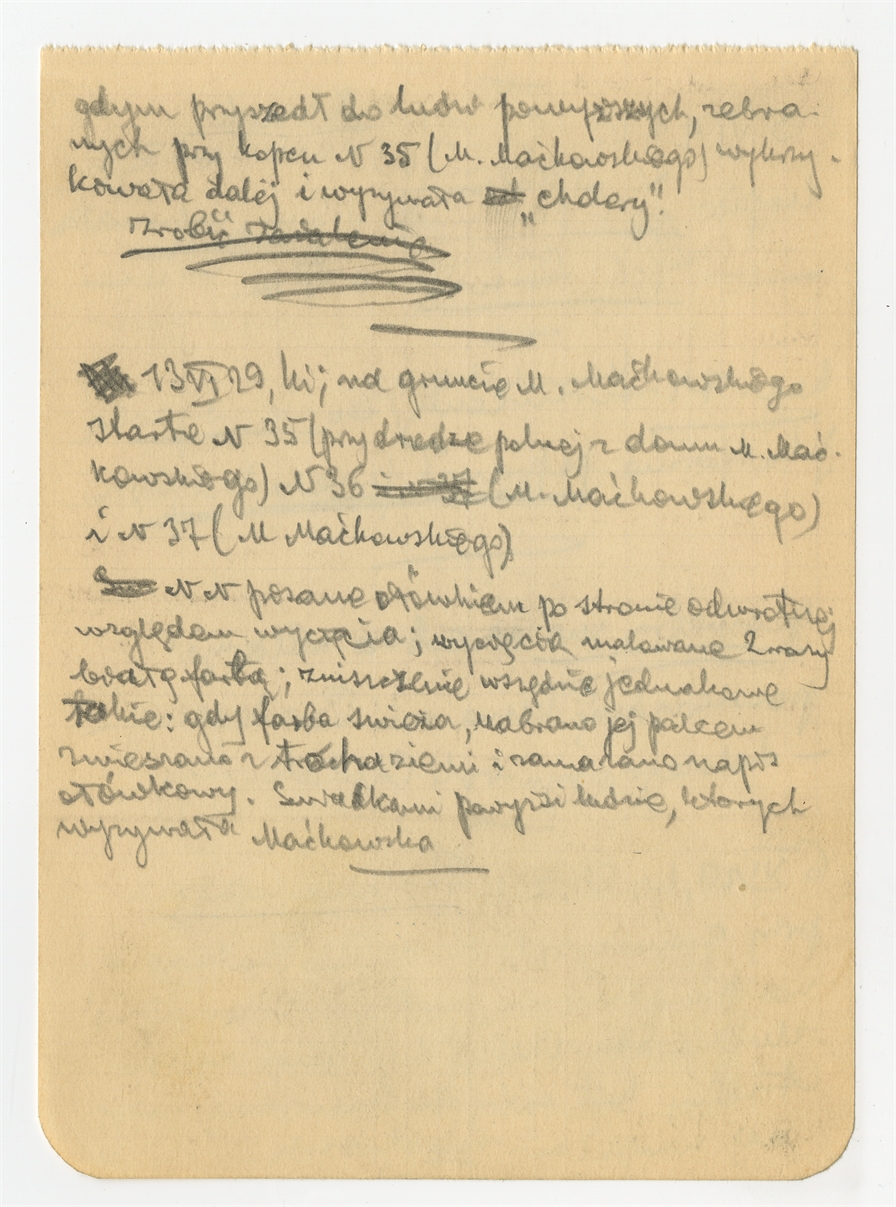 gdym przyszedł do ludzi powyższych, zebra-
nych przy kopcu N 35 (M. Maćkowskiego) wykrzy-
kowała dalej i wyzywała „chdery".
Zrobić
13 VI 29, na gruncie M. Maćkowskiego
starte N 35 (przy drodze polnej z domu M. Mać-
kowskiego) N 36 (M. Maćkowskiego)
i N 37 (M Maćkowskiego)
N N pisane ołówkiem po stronie odwrotnej
względem wycięcia; wycięcia malowane 2 razy
białą farbą; zniszczenie wszędzie jednakowe
takie: gdy farba świeża, nabrano jej palcem
zmieszano z trochą ziemi i zamazano napis
ołówkowy. Świadkami powyżsi ludzie, których
wyzywała Maćkowska